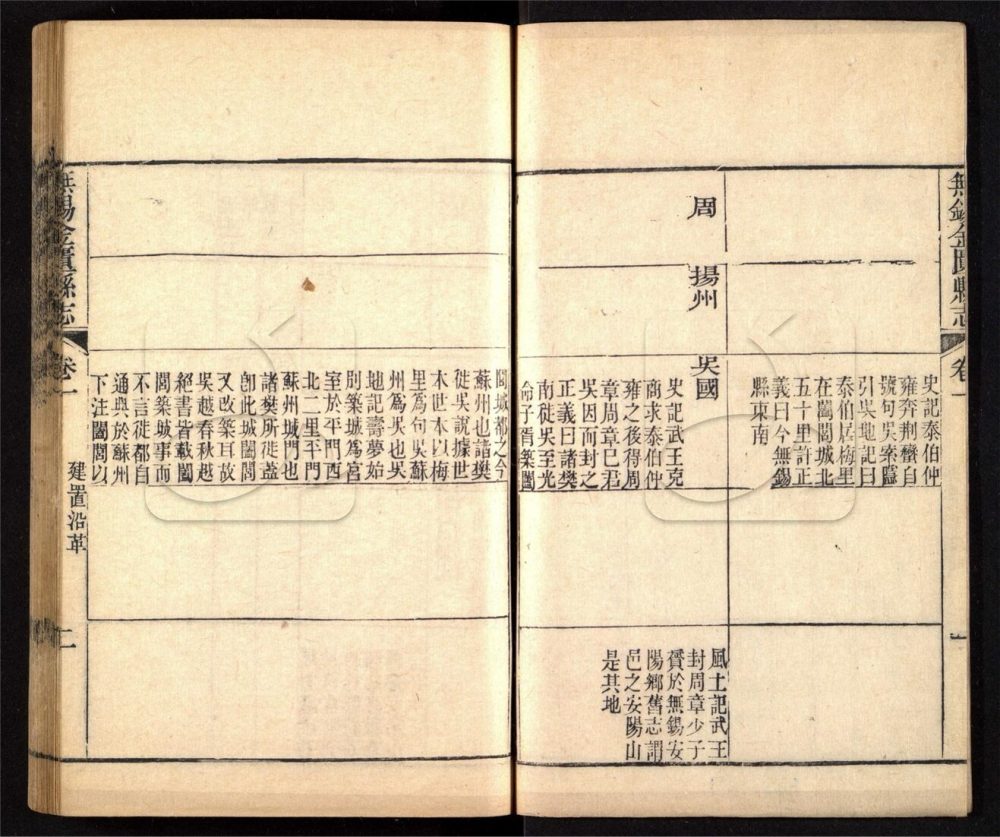 無錫金匱縣志
卷一
一
史記泰伯仲
雍奔荆蠻自
號句吳索隱
引吳地記曰
泰伯居梅里
在闔閭城北
五十里許正
義曰今無錫
縣東南
周
揚州
吳國
史記武王克
商求泰伯仲
雍之後得周
章周章已君
吳因而封之
正義曰諸樊
南徙吳至光
命子胥築闔
風土記武王
封周章少子
贇於無錫安
陽鄉舊志謂
邑之安陽山
是其地
閭城都之今
蘇州也諸樊
徙吳說據世
本世本以梅
里爲句吳蘇
州爲吳也吳
地記壽夢始
別築城爲宮
室於平門西
北二里平門
蘇州城門也
諸樊所徙蓋
卽此城闔閭
又改築耳故
吳越春秋越
絕書皆載闔
閭築城事而
不言徙都自
通典於蘇州
下注闔閭以
無錫金匱縣志
卷一
建置沿革
二